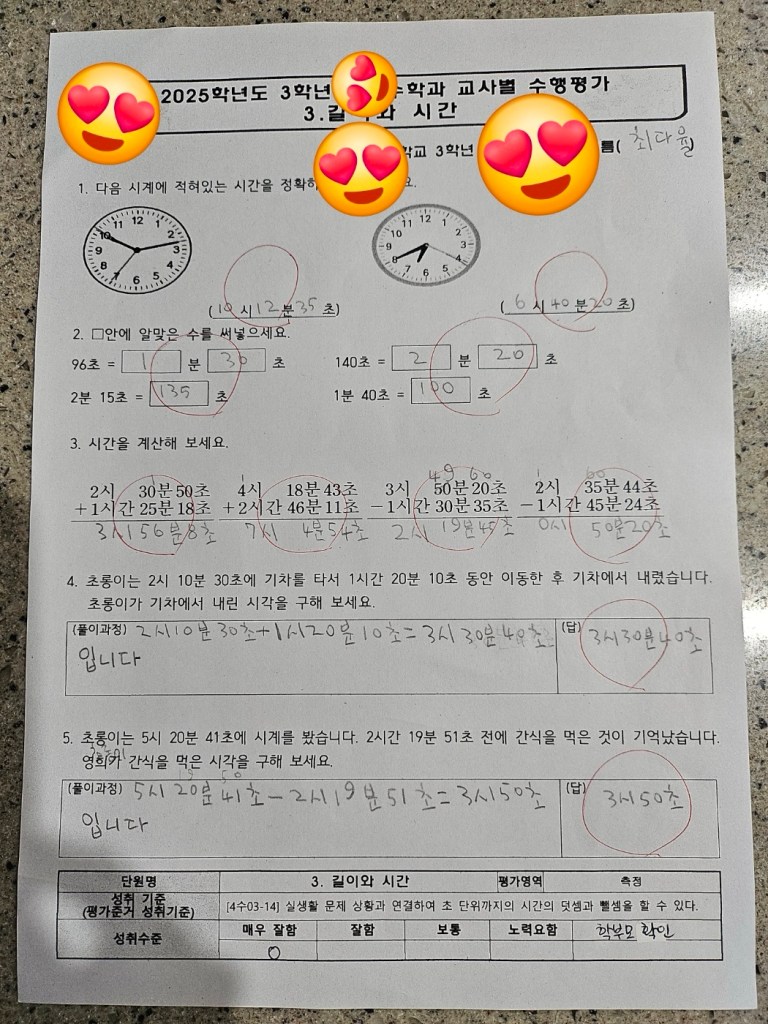 2025학년도 3학년 수학과 교사별 수행평가
3.길이와 시간
학교 3학년 름( 최다율 )
1. 다음 시계에 적혀있는 시간을 정확히 요.
12 1 2 3 4 5 6 7 8 9 10 11
12 1 2 3 4 5 6 7 8 9 10 11
( 10 시 12 분 35 초) ( 6 시 40 분 20 초)
2. □안에 알맞은 수를 써넣으세요.
96초 = 1 분 30 초 140초 = 2 분 20 초
2분 15초 = 135 초 1분 40초 = 100 초
3. 시간을 계산해 보세요.
49 60 60
2시 30분 50초 4시 18분 43초 3시 50분 20초 2시 35분 44초
+ 1시간 25분 18초 + 2시간 46분 11초 - 1시간 30분 35초 - 1시간 45분 24초
3시 56분 8초 7시 4분 54초 2시 19분 45초 0시 50분 20초
4. 초롱이는 2시 10분 30초에 기차를 타서 1시간 20분 10초 동안 이동한 후 기차에서 내렸습니다.
초롱이가 기차에서 내린 시각을 구해 보세요.
(풀이과정) 2시10분30초+1시20분10초=3시30분40초 (답) 3시30분40초
입니다
5. 초롱이는 5시 20분 41초에 시계를 봤습니다. 2시간 19분 51초 전에 간식을 먹은 것이 기억났습니다.
영희가 간식을 먹은 시각을 구해 보세요.
(풀이과정) 5시20분41초-2시19분51초=3시50초 (답) 3시50초
입니다
단원명 3. 길이와 시간 평가영역 측정
성취 기준
(평가준거 성취기준) [4수03-14] 실생활 문제 상황과 연결하여 초 단위까지의 시간의 덧셈과 뺄셈을 할 수 있다.
성취수준 매우 잘함 잘함 보통 노력요함 학부모 확인